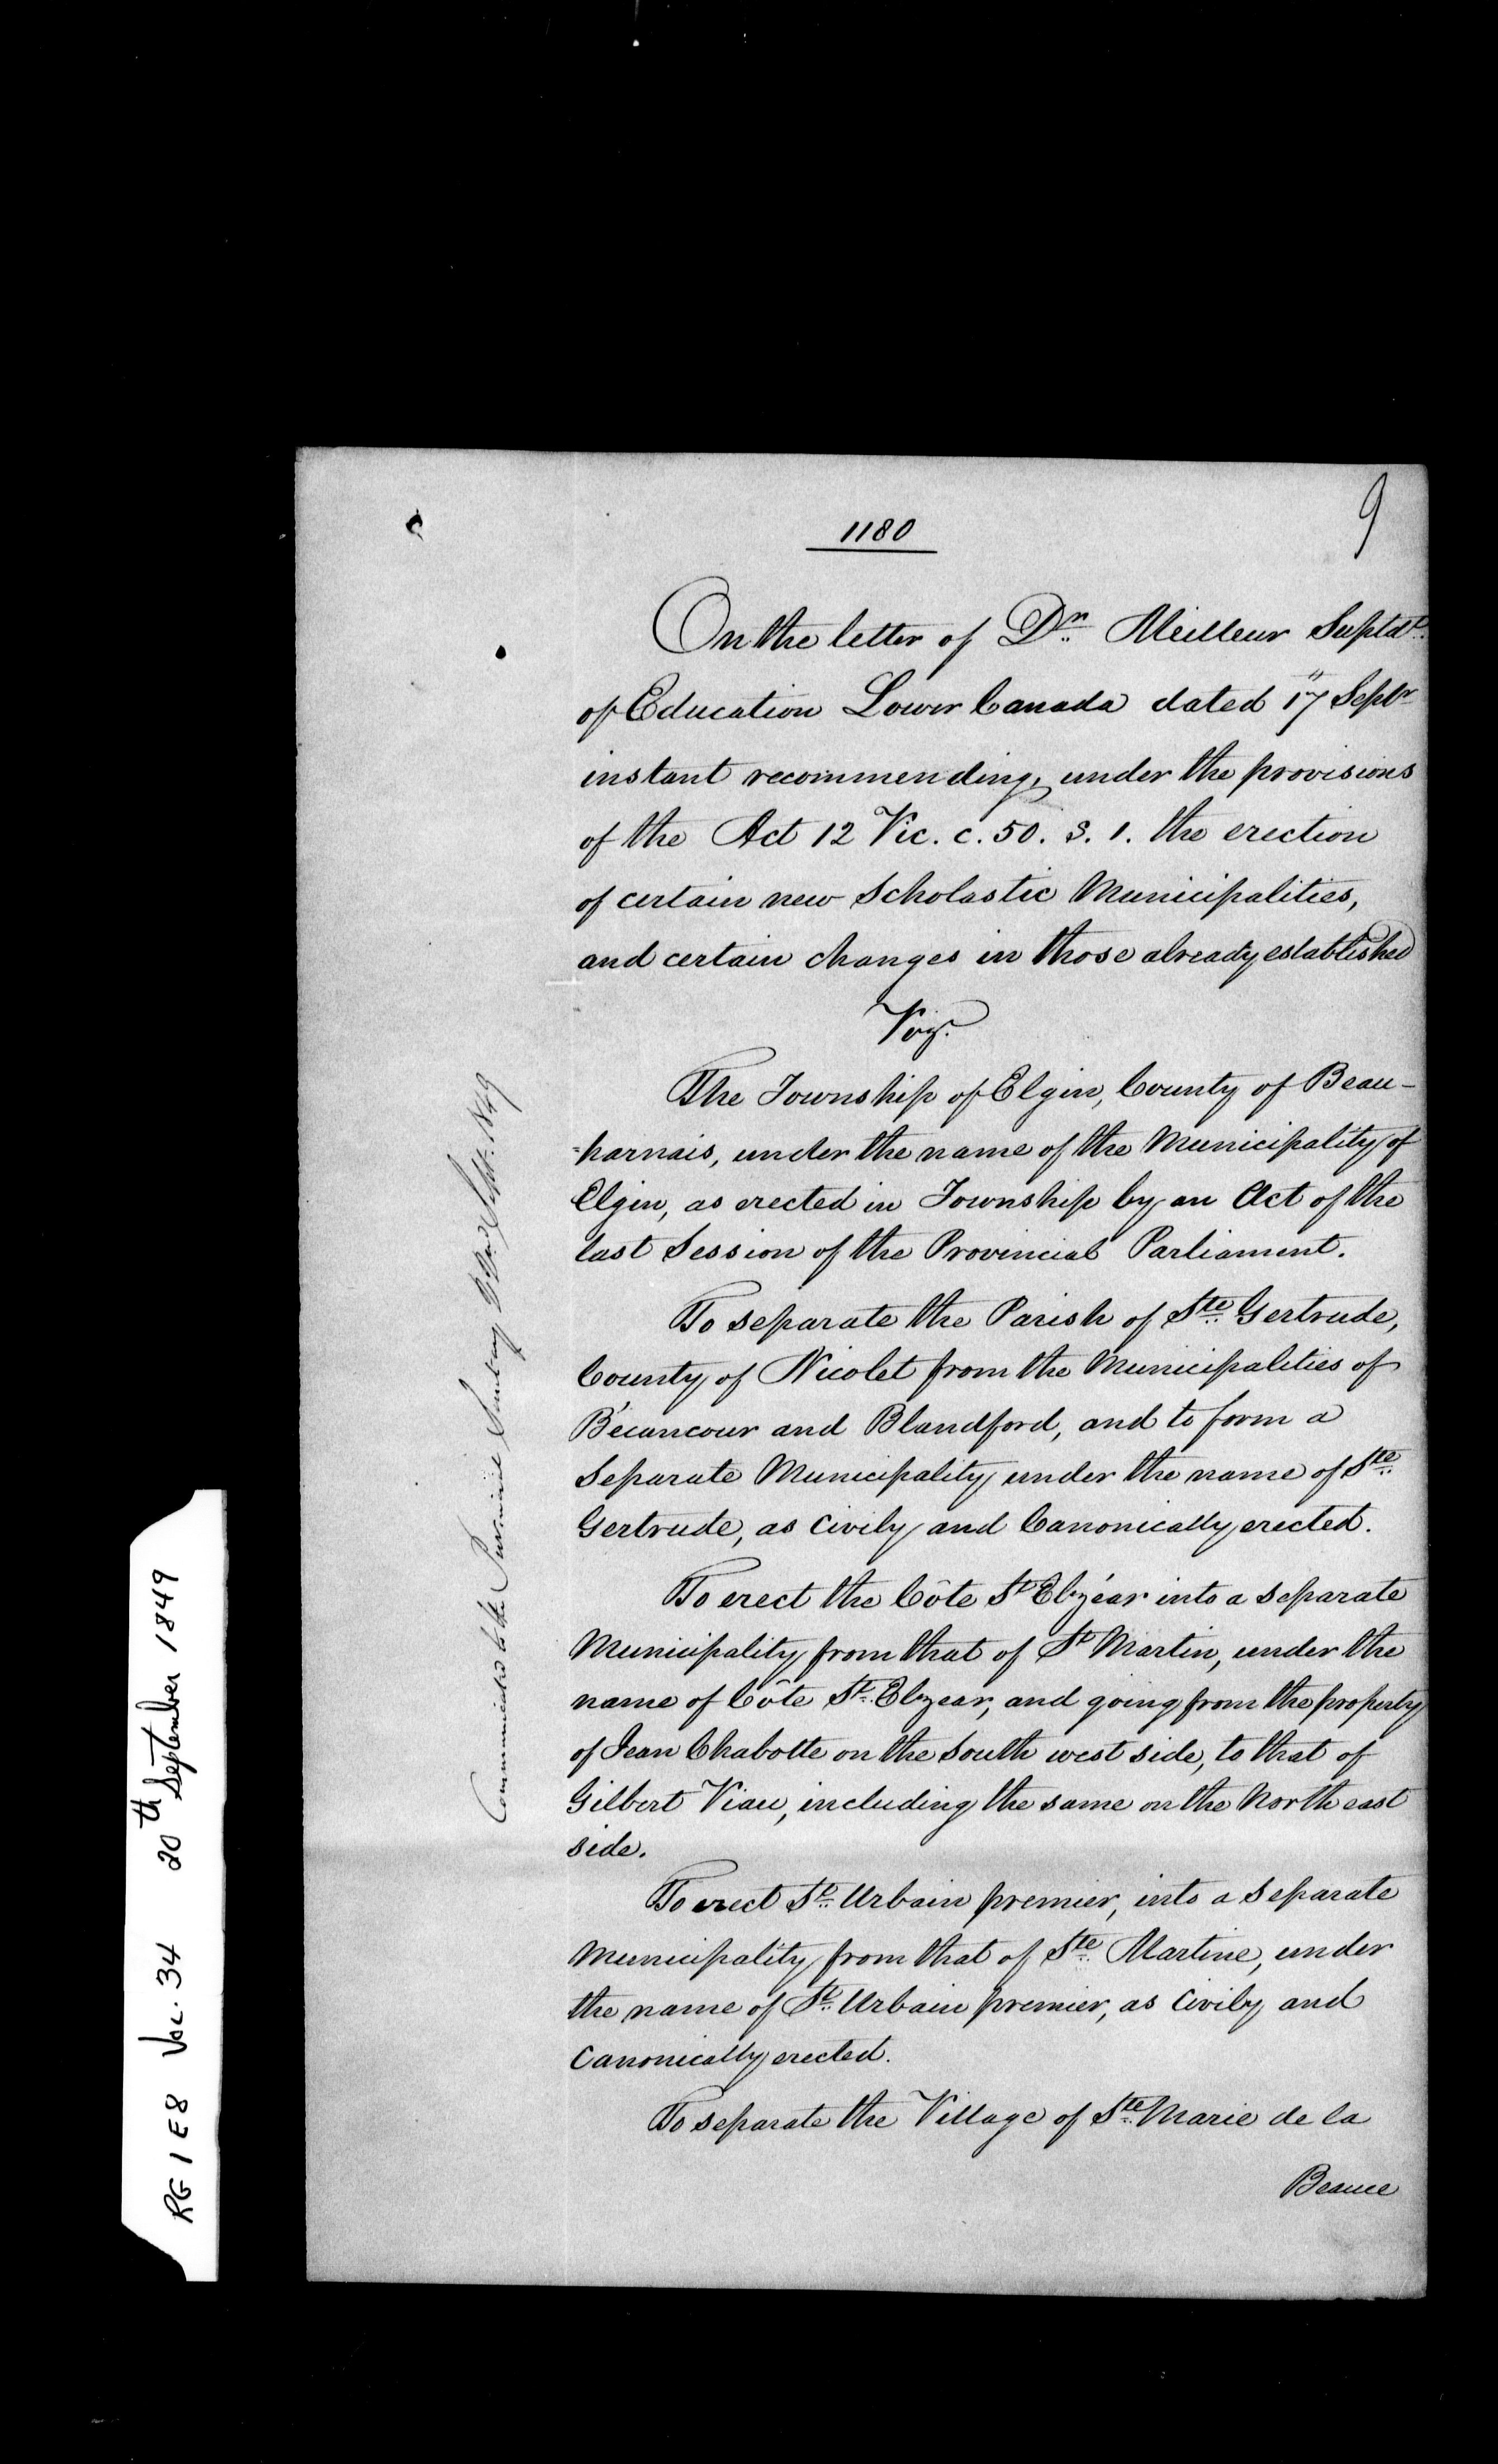 1180
9
On the letter of Dr. Meilleur Suptdt.
of Education Lower Canada dated 17 Septr
instant recommending, under the provisions
of the Act 12 Vic. c. 50. S. 1. the erection
of certain new Scholastic Municipalities,
and certain changes in those already established
Viz.
The Township of Elgin, County of Beau-
-harnais, under the name of the Municipality of
Elgin, as erected in Township by an Act of the
last Session of the Provincial Parliament.
To separate the Parish of Ste. Gertrude,
County of Nicolet from the Municipalities of
Bécancour and Blandford, and to form a
Separate Municipality under the name of Ste.
Gertrude, as Civily and Canonically erected.
To erect the Côte St Elzéar into a separate
Municipality from that of St Martin, under the
name of Côte St. Elzear, and going from the property
of Jean Chabotte on the South west side, to that of
Gilbert Viau, including the same on the North east
side.
To erect St. Urbain premier, into a separate
Municipality from that of Ste. Martine, under
the name of St. Urbain premier, as Civily and
Canonically erected.
To separate the Village of Ste. Marie de la
Beauce
Communicated to the Provincial Secretary Sept. 1849
RG 1 E8 Vol. 34 20th September 1849